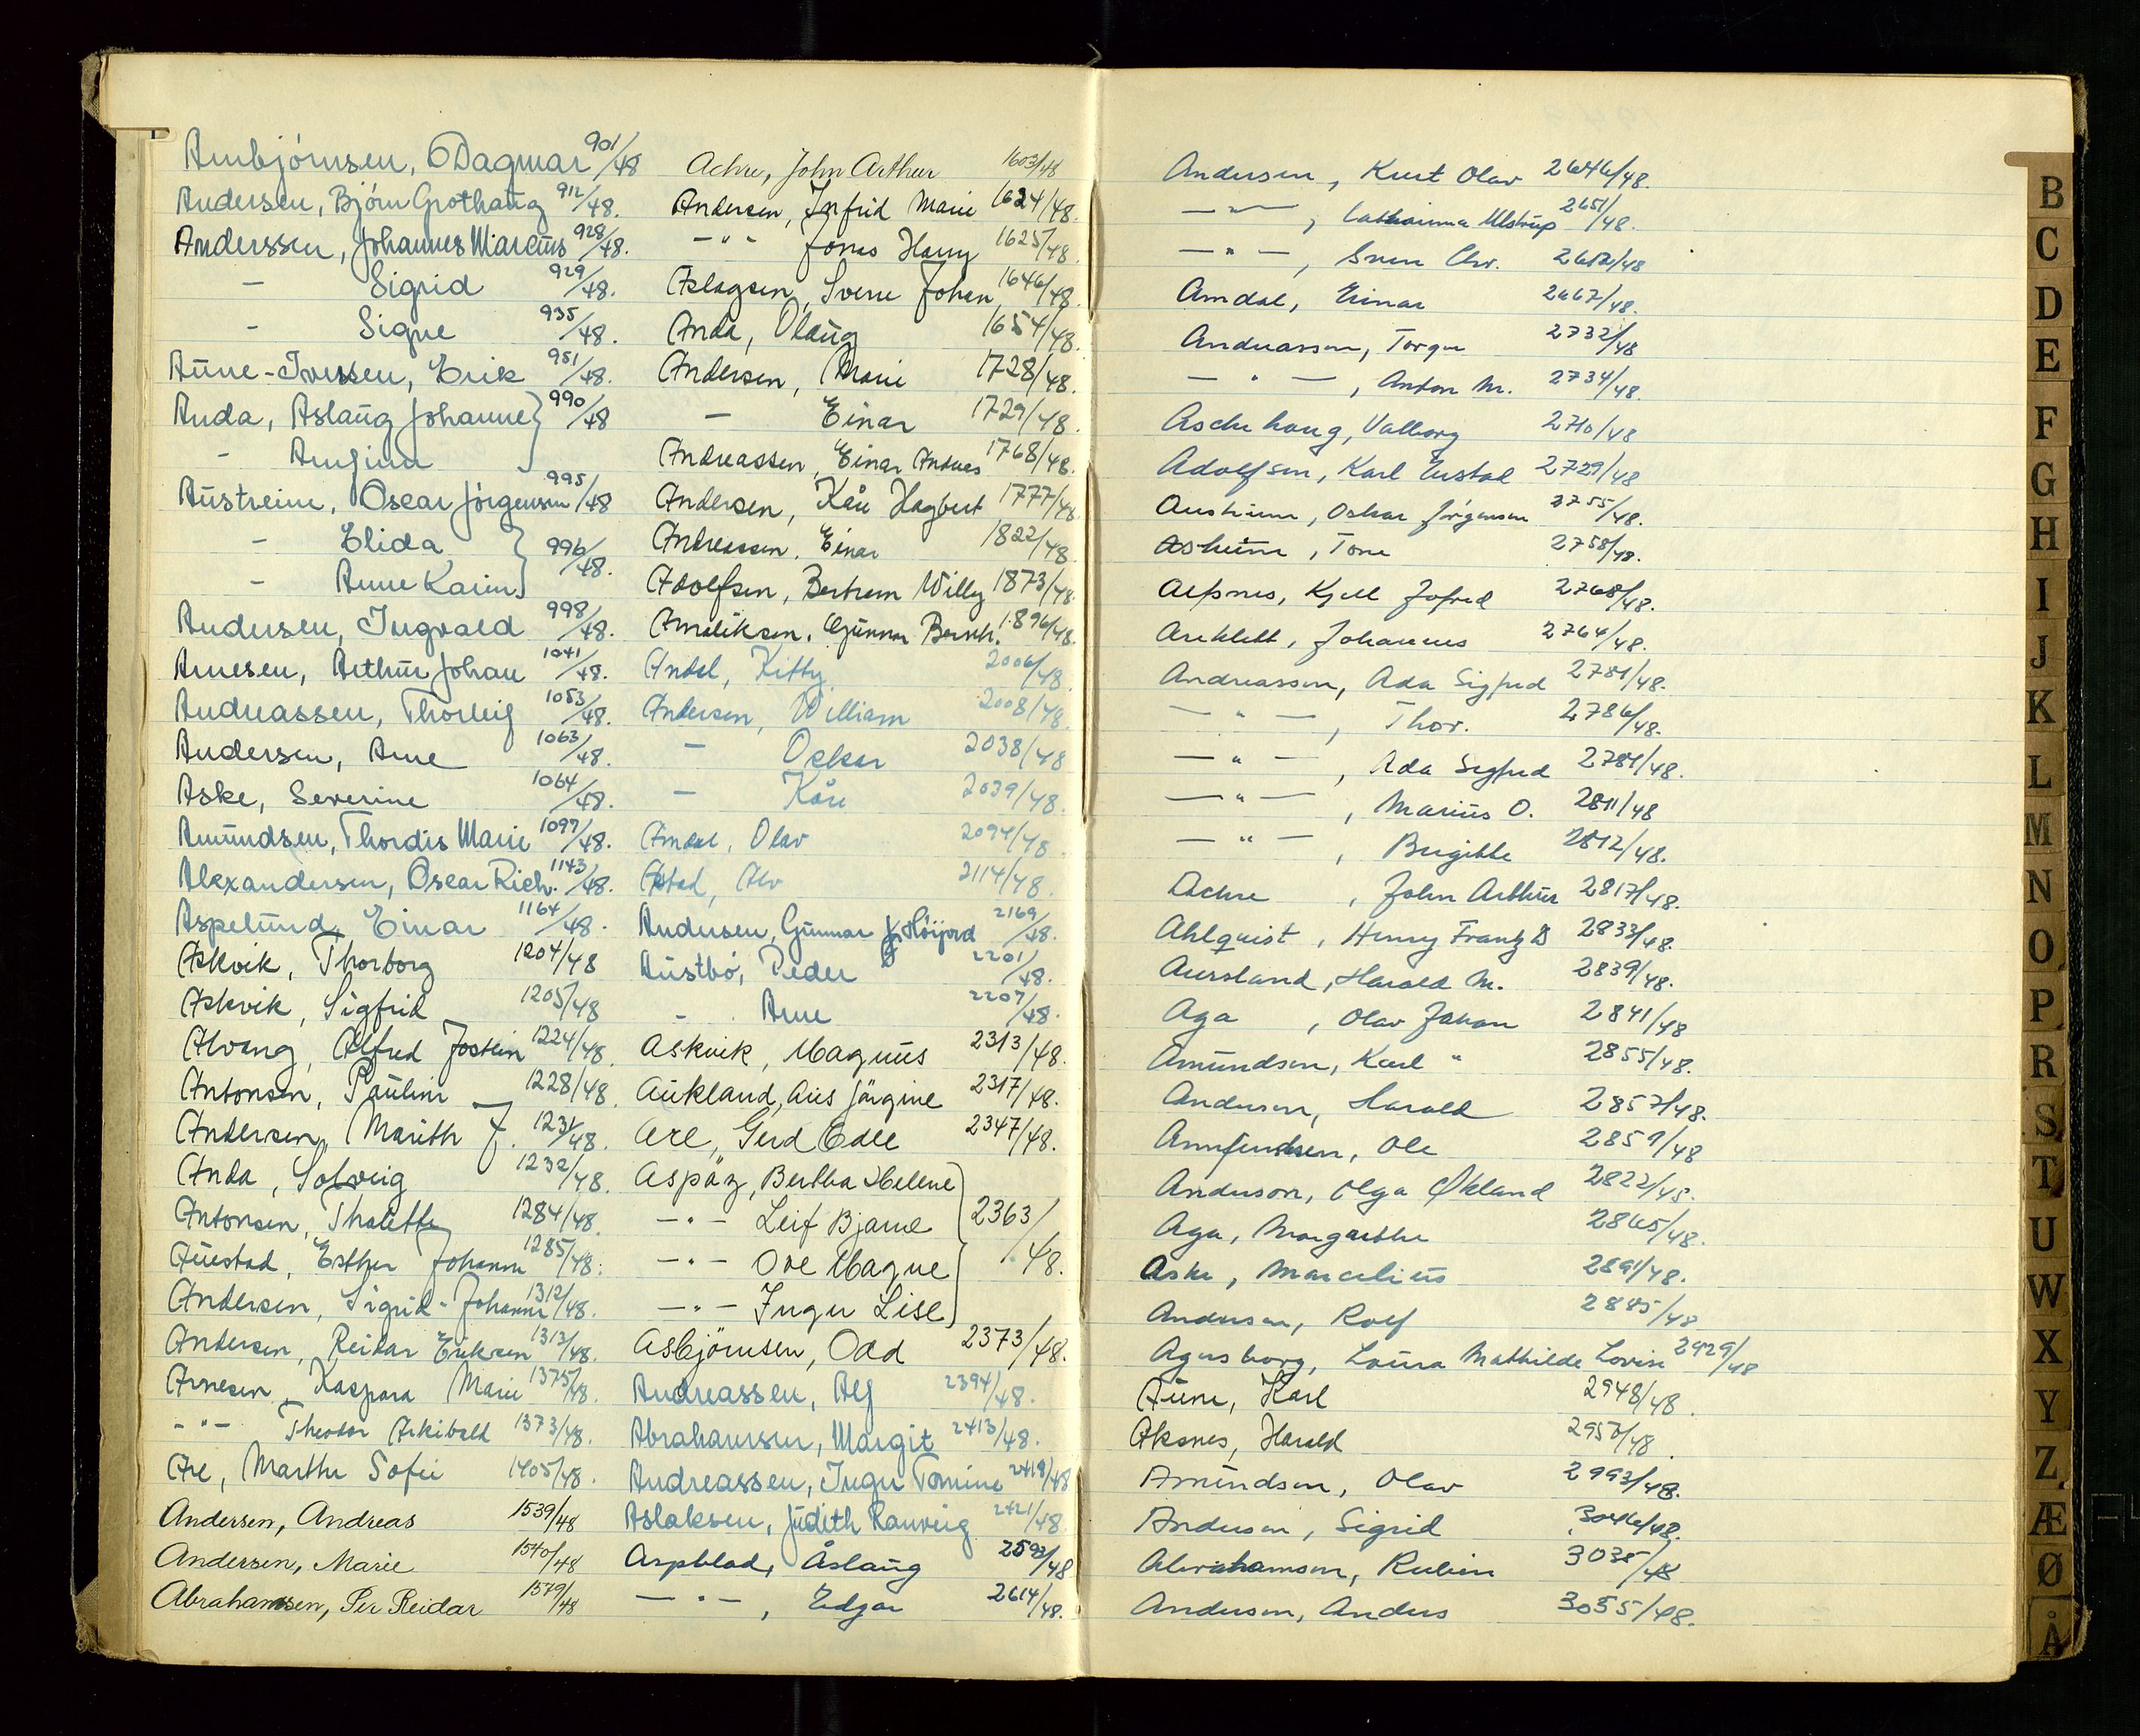 Arnbjörnsen, Dagmar 901/48
Andersen, Björn Grothaug 912/48.
Anderssen, Johannes Marcus 928/48.
- Sigrid 929/48.
- Signe 935/48.
Aune-Iversen, Erik 951/48.
Anda, Aslaug Johanne } 990/48
- Arnfinn
Austreim, Oscar Jörgensen 995/48
- Elida } 996/48.
- Anne Karin
Andersen, Ingvald 998/48.
Arnesen, Arthur Johan 1041/48.
Andreassen, Thorleif 1053/48.
Andersen, Arne 1063/48.
Aske, Severine 1064/48.
Amundsen, Thordis Marie 1097/48.
Alexandersen, Oscar Rich. 1143/48.
Aspelund, Einar 1164/48.
Askvik, Thorborg 1204/48
Askvik, Sigfrid 1205/48
Alvang, Alfred Jostein 1224/48.
Antonsen, Pauline 1228/48.
Andersen, Marith J. 1231/48.
Anda, Solveig 1232/48.
Antonsen, Thalette 1284/48.
Auestad, Esther Johanne 1285/48.
Andersen, Sigrid-Johanne 1312/48.
Andersen, Reidar Eriksen 1313/48.
Arnesen, Kaspara Marie 1375/48.
-"- Theodor Arkibald 1373/48.
Are, Marthe Sofie 1405/48.
Andersen, Andreas 1539/48
Andersen, Marie 1540/48
Abrahamsen, Per Reidar 1579/48
Achre, John Arthur 1603/48
Andersen, Infrid Marie 1624/48.
-"- Jonas Harry 1625/48
Aslagsen, Sverre Johan 1646/48.
Anda, Olaug 1654/48.
Andersen, Marie 1728/48.
- Einar 1729/48.
Andreassen, Einar Andreas 1768/48.
Andersen, Kåre Hagbert 1777/48
Andreassen, Einar 1822/48
Adolfsen, Bertram Willy 1873/48
Amaliksen, Gunnar Bernh. 1896/48.
Andal, Kitty 2006/48
Andersen, William 2008/48.
- Oskar 2038/48
- Kåre 2039/48.
Amdal, Olav 2094/48
Astad, Alv 2114/48.
Andersen, Gunnar Höijord 2169/48.
Austbö, Peder 2201/48.
- Arne 2207/48.
Askvik, Magnus 2313/48.
Aukland, Ais Jörgine 2317/48.
Are, Gerd Edle 2347/48.
Aspöz, Bertha Helene
-"- Leif Bjarne } 2363/48.
-"- Ove Magne
-"- Inger Lise
Asbjörnsen, Odd 2373/48.
Andreassen, Alf 2394/48.
Abrahamsen, Margit 2413/48.
Andreassen, Inger Tomine 2419/48
Aslaksen, Judith Ranveig 2421/48.
Aspblad, Åslaug 2593/48
-"-, Edgar 2614/48.
Andersen, Kurt Olav 2646/48.
-"-, Catharinna Ulstrup 2651/48.
-"-, Svein Chr. 2652/48
Amdal, Einar 2667/48.
Andreassen, Torger 2732/48
-"-, Anton M. 2734/48.
Aschehoug, Valborg 2710/48
Adolfsen, Karl Gustal 2729/48
Austreim, Oskar Jörgensen 2755/48.
Asheim, Tone 2758/48.
Alfsnes, Kjell Jofred 2768/48.
Areklett, Johannes 2764/48.
Andreassen, Ada Sigfred 2781/48.
-"-, Thor. 2786/48.
-"-, Ada Sigfred 2781/48.
-"-, Marius O. 2811/48
-"-, Birgitte 2812/48.
Achre, John Arthur 2817/48.
Ahlquist, Henry Frantz D 2833/48.
Aursland, Harald M. 2839/48.
Aga, Olav Johan 2841/48
Amundsen, Karl " 2855/48.
Andersen, Harald 2857/48.
Arnfindsen, Ole 2859/48
Anderson, Olga Økland 2822/48.
Aga, Margrethe 2865/48.
Aske, Marcelius 2891/48.
Andersen, Rolf 2885/48
Agersborg, Laura Mathilde Lovise 2929/48
Aune, Karl 2948/48.
Aksnes, Harald 2950/48.
Amundsen, Olav 2993/48.
Andersen, Sigrid 3046/48.
Abrahamsen, Rubin 3035/48
Andersen, Anders 3055/48.
B
C
D
E
F
G
H
I
J
K
L
M
N
O
P
R
S
T
U
W
X
Y
Z
Æ
Ø
Å